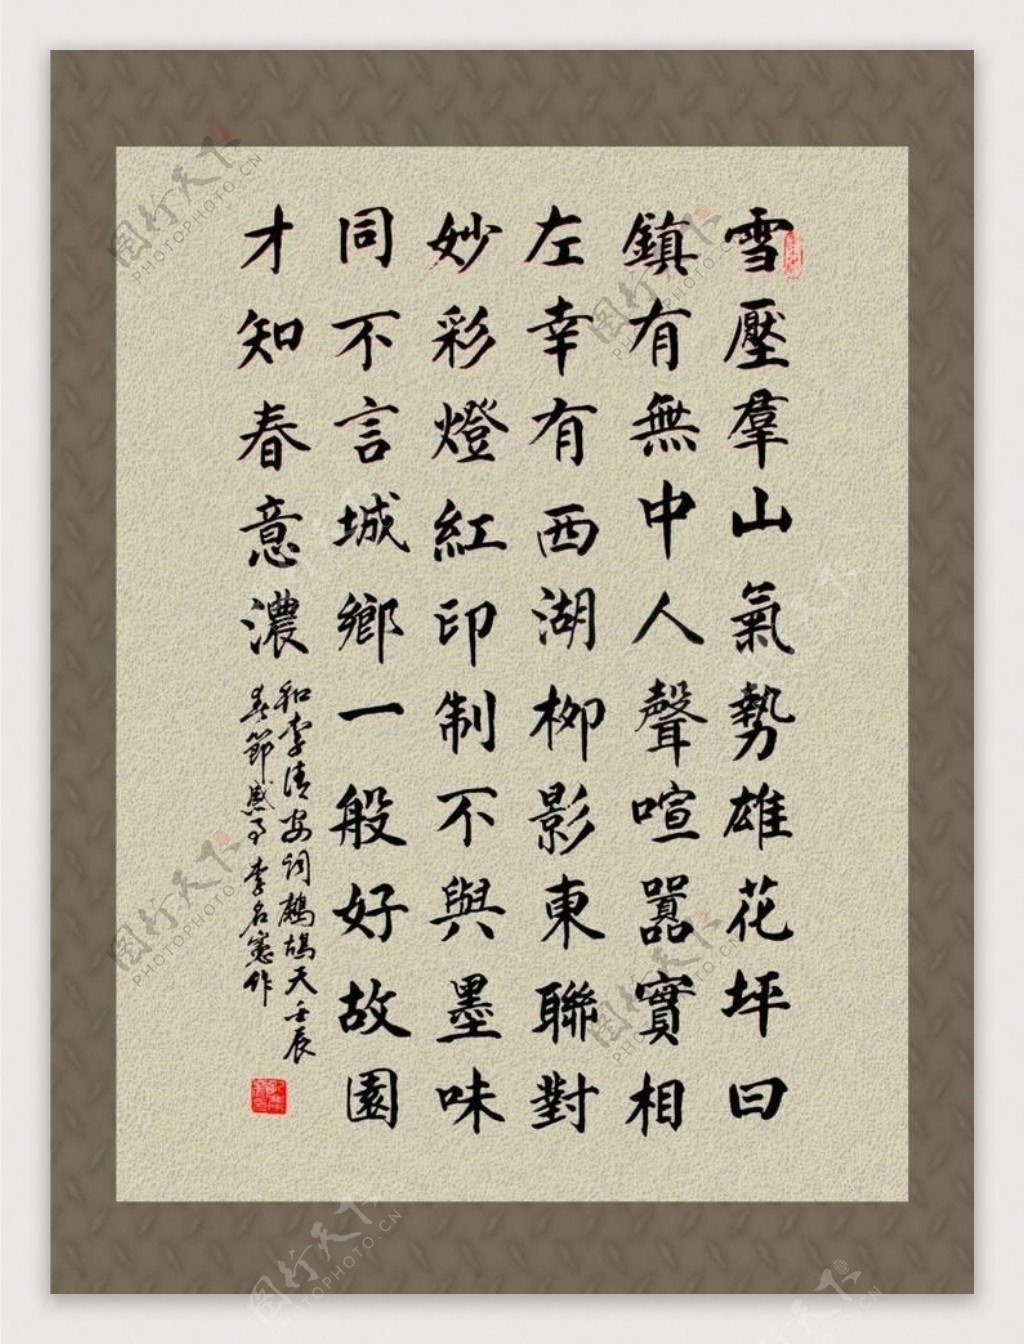 雪壓羣山氣勢雄花坪曰
鎮有無中人聲喧囂實相
左幸有西湖柳影東聯對
妙彩燈紅印制不與墨味
同不言城鄉一般好故園
才知春意濃
和李清安詞鷓鴣天壬辰
春節感事李名憲作
图行天下
PHOTOPHOTO.CN